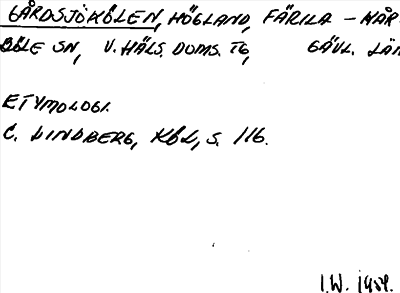 GÅRDSJÖKÖLEN, HÖGLAND, FÄRILA – KÅR
BÖLE SN, V. HÄLS. DOMS. TG, GÄVL. LÄN
ETYMOLOGI.
C. LINDBERG, KÖL, S. 116.
I.W. 1959.